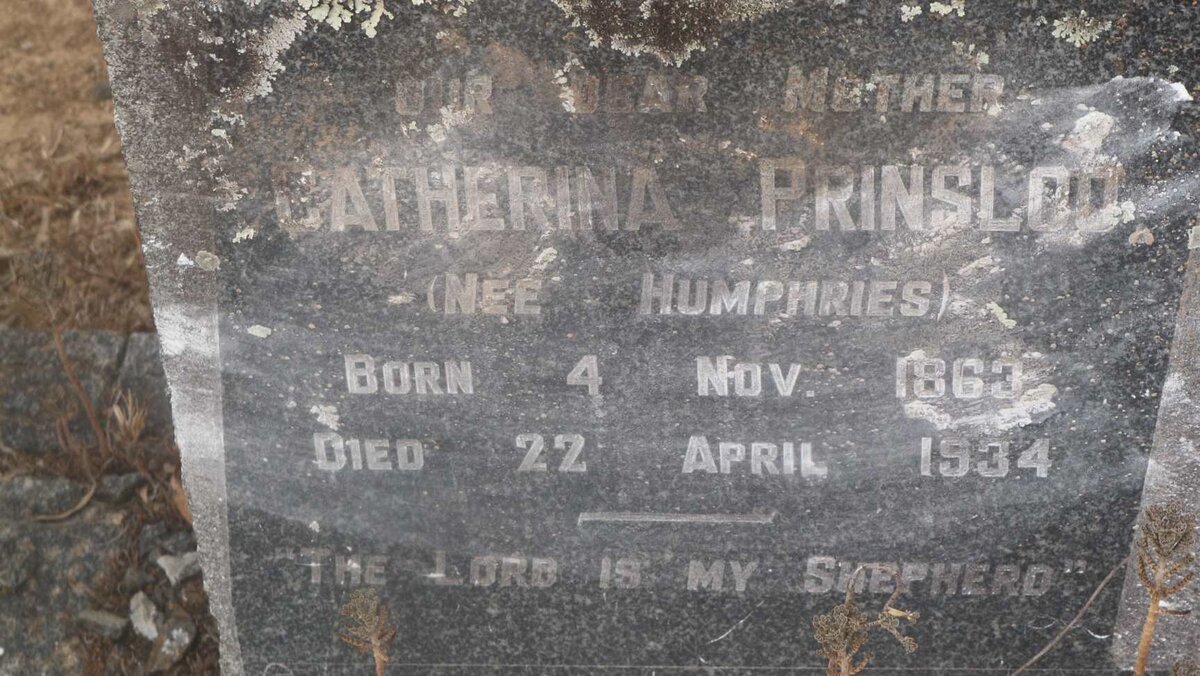 OUR DEAR MOTHER
CATHERINA PRINSLOO
(NEE HUMPHRIES)
BORN 4 NOV. 1863
DIED 22 APRIL 1934
"THE LORD IS MY SHEPHERD"